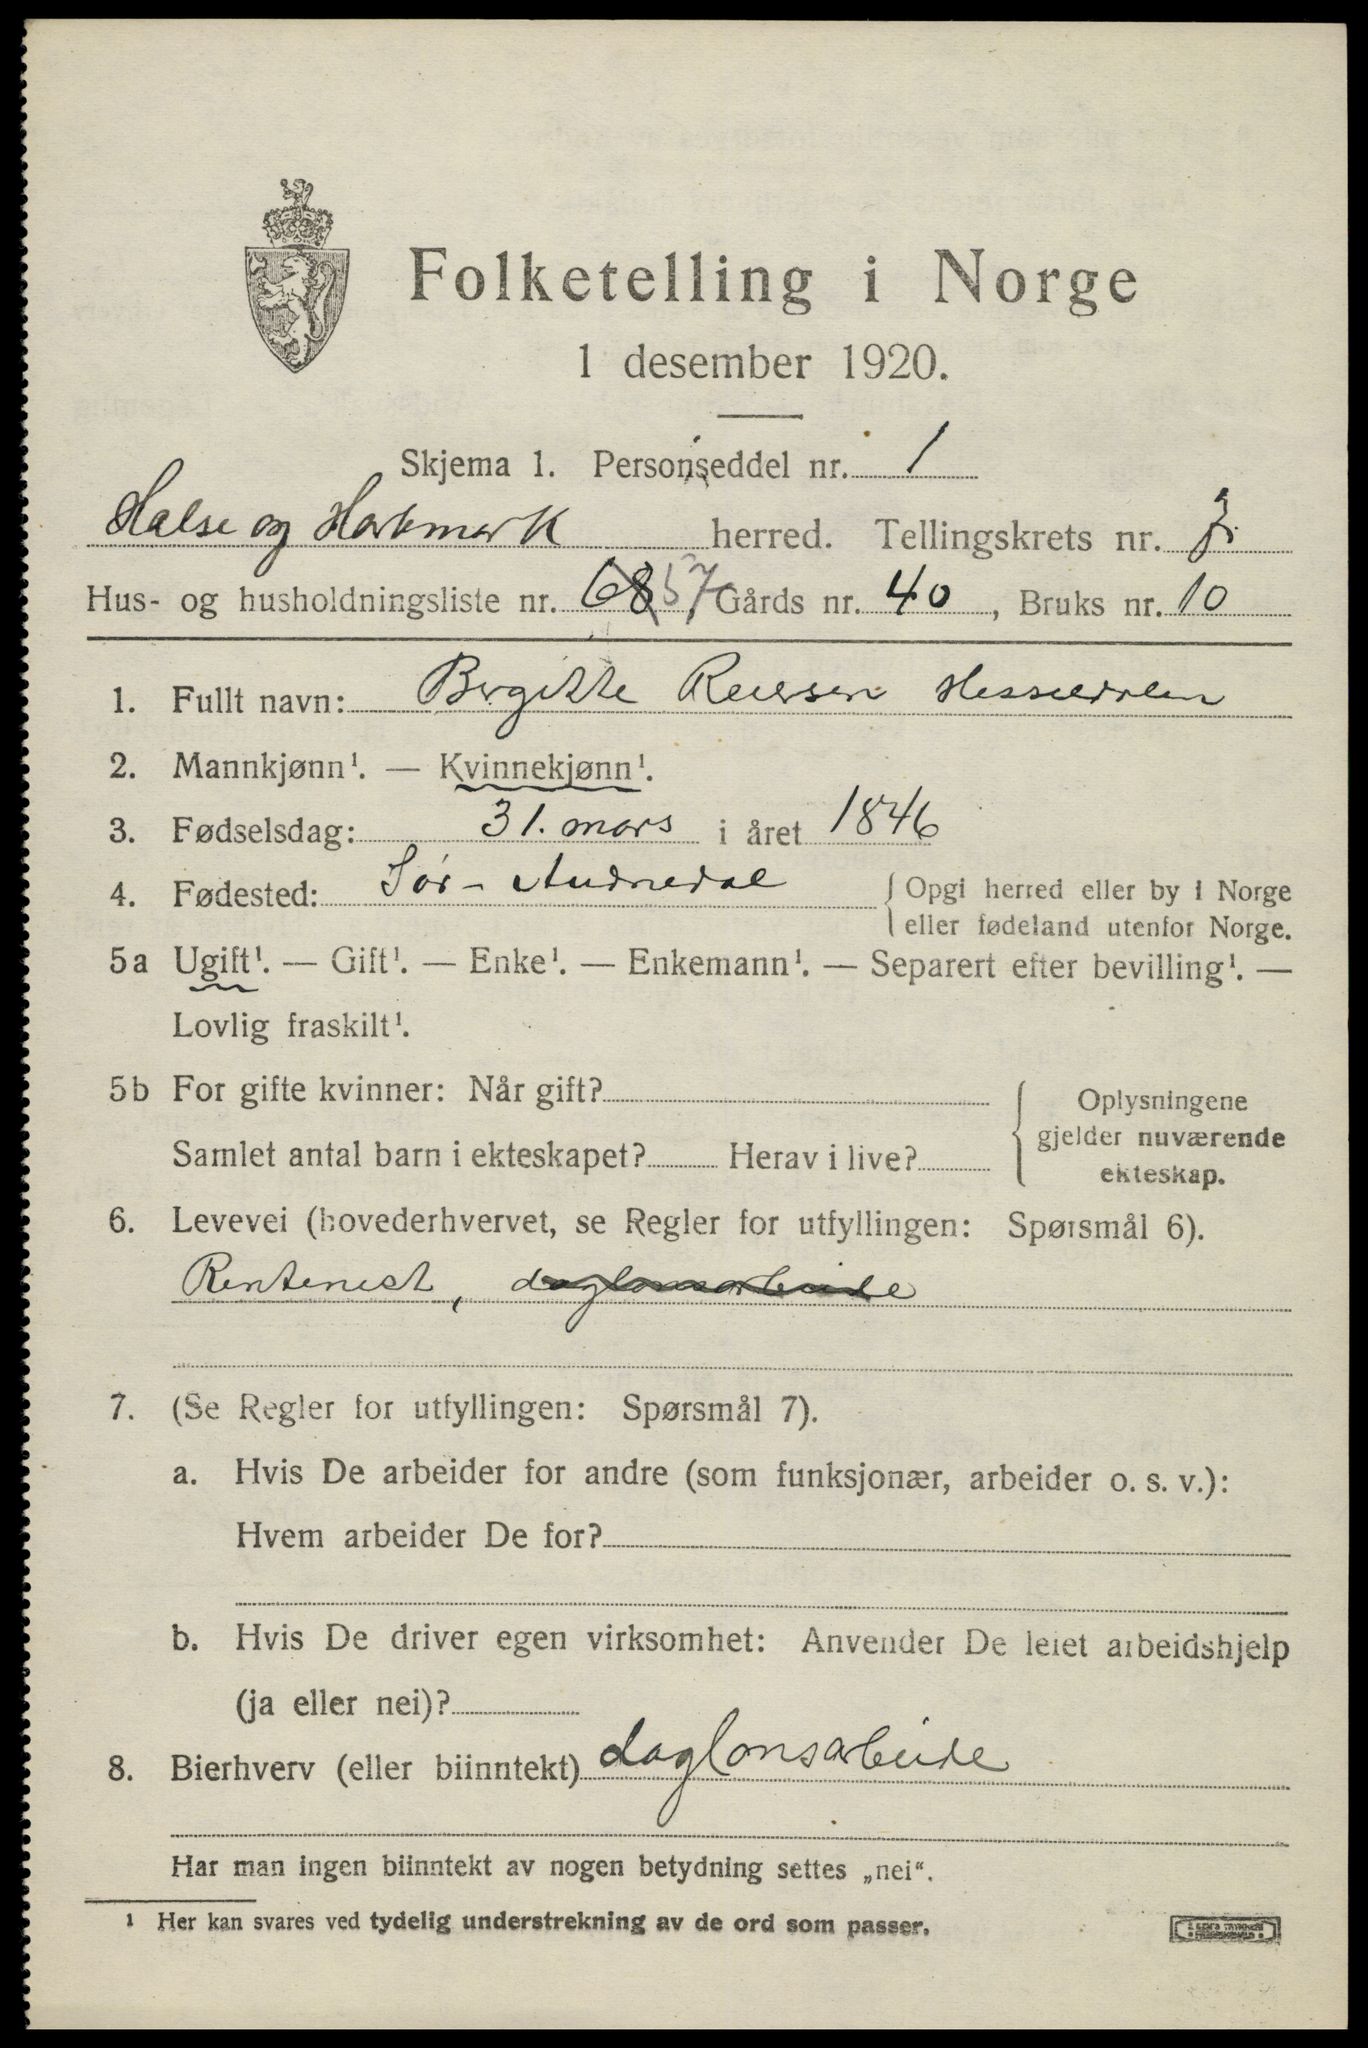 Folketelling i Norge
1 desember 1920.
Skjema 1. Personseddel nr. 1
Halse og Harkmark herred. Tellingskrets nr. 7.
Hus- og husholdningsliste nr. 68 57 Gårds nr. 40, Bruks nr. 10
1. Fullt navn: Birgitte Reiersen Hesseldalen
2. Mannkjønn¹. — Kvinnekjønn¹.
3. Fødselsdag: 31. mars i året 1846
4. Fødested: Sør-Audnedal { Opgi herred eller by i Norge
eller fødeland utenfor Norge.
5a Ugift¹. — Gift¹. — Enke¹. — Enkemann¹. — Separert efter bevilling¹. —
Lovlig fraskilt¹.
5b For gifte kvinner: Når gift?
Samlet antal barn i ekteskapet? Herav i live?
Oplysningene
gjelder nuværende
ekteskap.
6. Levevei (hovederhvervet, se Regler for utfyllingen: Spørsmål 6).
Rentenist, daglonsarbeide
7. (Se Regler for utfyllingen: Spørsmål 7).
a. Hvis De arbeider for andre (som funksjonær, arbeider o. s. v.):
Hvem arbeider De for?
b. Hvis De driver egen virksomhet: Anvender De leiet arbeidshjelp
(ja eller nei)?
8. Bierhverv (eller biinntekt) daglonsarbeide
Har man ingen biinntekt av nogen betydning settes „nei“.
¹ Her kan svares ved tydelig understrekning av de ord som passer.